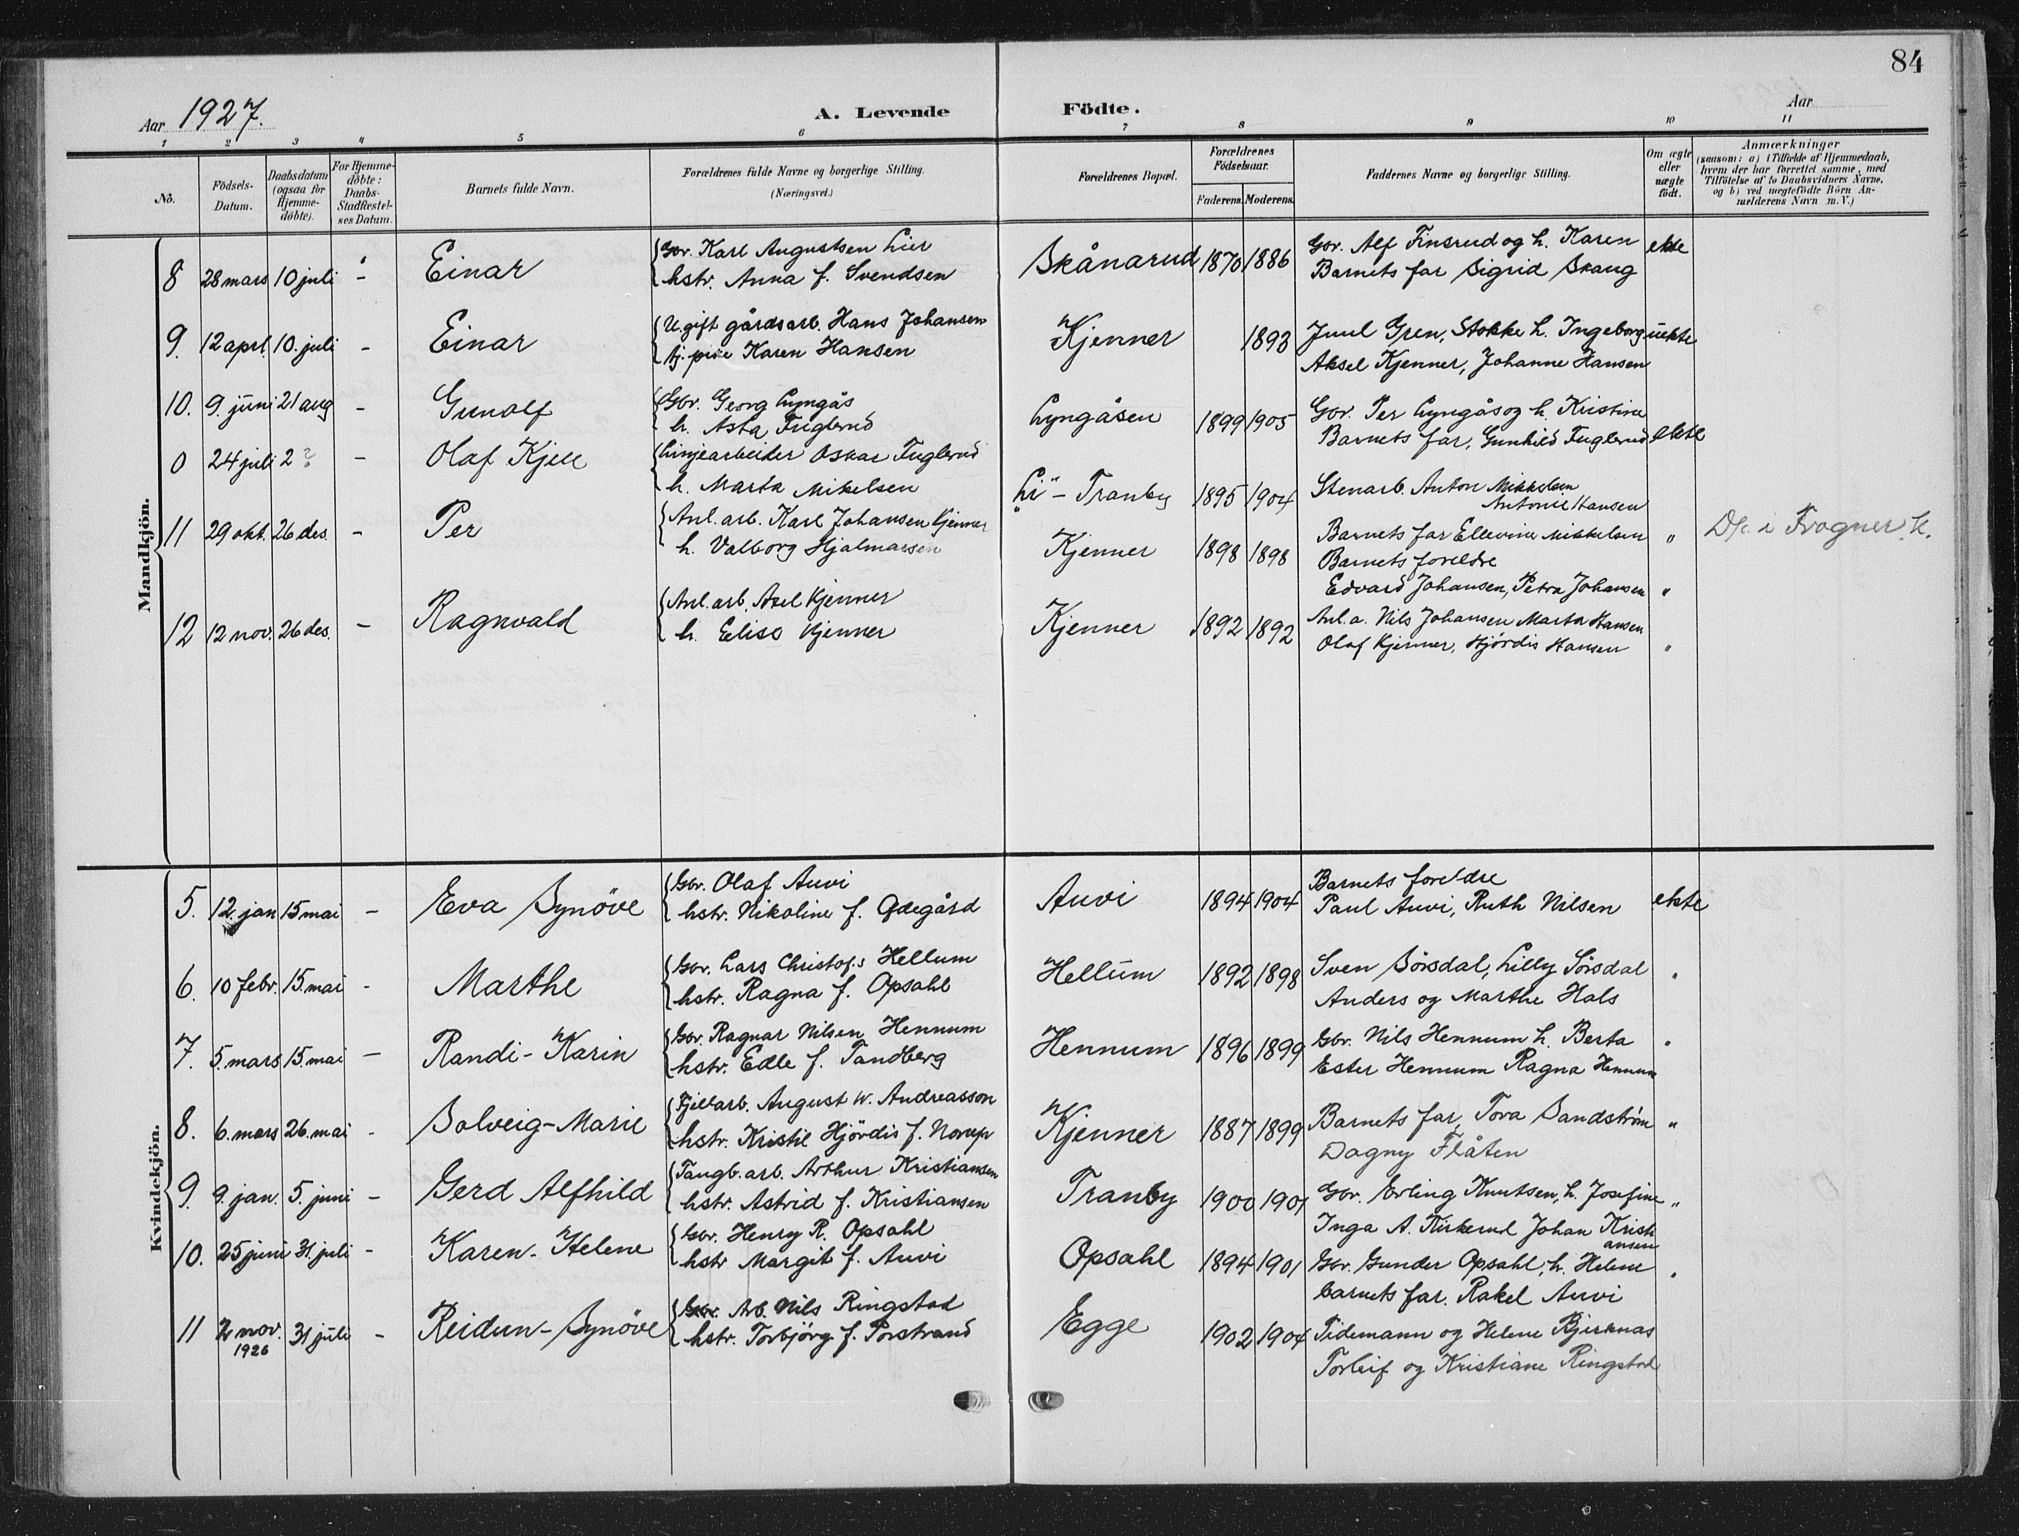 84
Aar 1927.
A. Levende Födte.
Aar
1 2 3 4 5 6 7 8 9 10 11
No.
Födsels-Datum.
Daabsdatum (ogsaa for Hjemme-döbte).
For Hjemme-döbte: Daabs-Stadfæstel-ses Datum.
Barnets fulde Navn.
Forældrenes fulde Navne og borgerlige Stilling.
(Næringsvei.)
Forældrenes Bopæl.
Forældrenes Födselsaar.
Faderens. Moderens.
Faddernes Navne og borgerlige Stilling.
Om ægte eller uægte födt.
Anmærkninger
(saasom: a) i Tilfælde af Hjemmedaab, hvem der har forrettet samme, med Tilföielse af to Daabsvidners Navne, og b) ved uegtefödte Börn An-melderens Navn m. V.)
Mandkjön.
8 28 mars 10 juli - Einar
Gbr. Karl Augustsen Lier
hstr. Anna f. Svendsen
Skånarud 1870 1886
Gbr. Alf Finsrud og h. Karen
Barnets far Sigrid Skaug
ekte
9. 12 aprl. 10. juli - Einar
U.gift gårdsarb. Hans Johansen
Karen Hansen
Kjenner 1893
Juul Gren, Stokke h. Ingeborg
Aksel Kjenner, Johanne Hansen
uekte
10. 9. juni 21 aug - Gunolf
Gbr. Georg Lyngås
h. Asta Fuglerud
Lyngåsen 1899 1905
Gbr. Per Lyngås og h. Kristine
Barnets far, Gunhild Fuglerud
ekte
0 24 juli 2 ? - Olaf Kjell
Linjearbeider Oskar Fuglerud
h. Marta Mikelsen
"Li" - Tranby 1895 1904
Stenarb. Anton Mikkelsen
Antonie Hansen
Barnets far Ellevine Mikkelsen "
11 29 okt. 26 des. - Per
Anl. arb. Karl Johansen Kjenner
h. Valborg Hjalmarsen
Kjenner 1898 1898
Barnets foreldre
Edvard Johansen, Petra Johansen "
Dp. i Frogner k.
12 12 nov. 26 des. - Ragnvald
Anl. arb. Axel Kjenner
h. Elise Kjenner
Kjenner 1892 1892
Anl. a. Nils Johansen Marta Hansen
Olaf Kjenner, Hjørdis Hansen "
Kvindekjön.
5. 12. jan 15 mai - Eva Synöve
Gbr. Olaf Auvi
hstr. Nikoline f. Ødegård
Auvi 1894 1904
Barnets foreldre
Paul Auvi, Ruth Nilsen
ekte
6. 10 febr. 15 mai - Marthe
Gbr. Lars Christof.s Hellum
hstr. Ragna f. Opsahl
Hellum 1892 1898
Sven Sørsdal, Lilly Sørsdal "
Anders og Marthe Hals
7. 5. mars 15. mai - Randi-Karin
Gbr. Ragnar Nilsen Hennum
hstr. Edle f. Tandberg
Hennum 1896 1899
Gbr. Nils Hennum h. Berta "
Ester Hennum Ragna Hennum
8. 6. mars 26. mai - Solveig-Marie
Fjellarb. August W. Andreasson
hstr. Kristie Hjördis f. Norup
Kjenner 1887 1899
Barnets far, Tora Sandstrøm "
Dagny Flåten
9. 9. jan. 5. juni - Gerd Alfhild
Taugb. arb. Arthur Kristiansen
hstr. Astrid f. Kristiansen
Tranby 1900 1901
Gbr. Erling Knutsen, h. Josefine "
Inga A. Kirkerud Johan Kristi
ansen
10. 25 juni 31. juli - Karen-Helene
Gbr. Henry R. Opsahl
hstr Margit f. Auvi
Opsahl 1894 1901
Gbr. Gunder Opsahl, h. Helene "
barnets far. Rakel Auvi
11 2 nov. 1926 31 juli - Reidun-Synöve
Gbr. Arb. Nils Ringstad
hstr. Torbjörg f. Porstrand
Egge 1902 1904
Tidemann og Helene Bjerknas
Torleif og Kristiane Ringstad